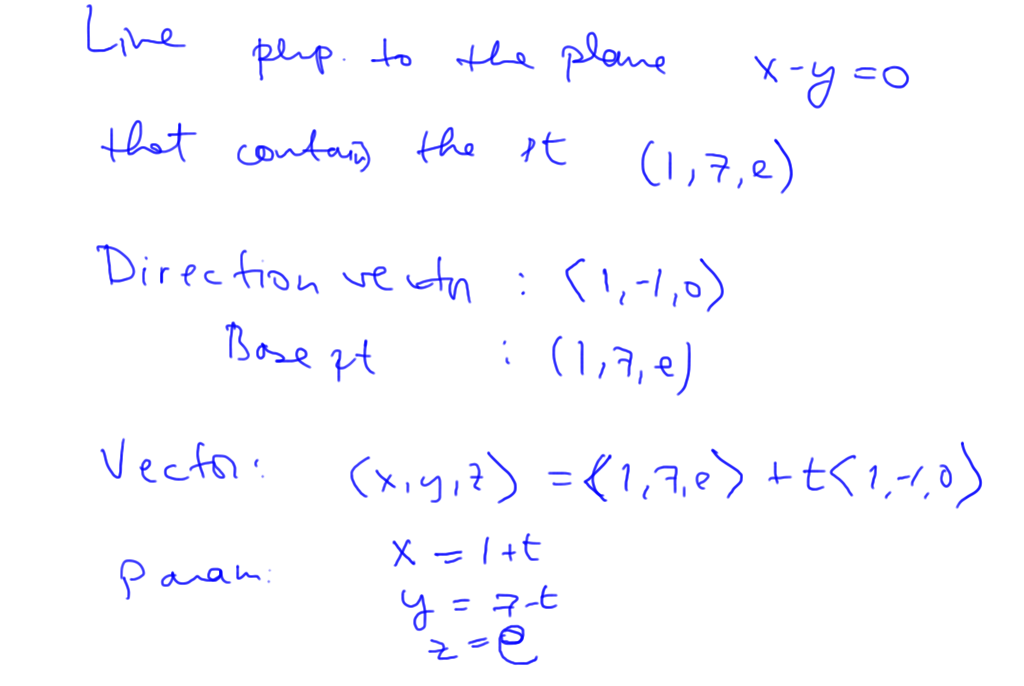 Line perp. to the plane x-y=0
that contains the pt (1,7,e)
Direction vector : ⟨1,-1,0⟩
Base pt : (1,7,e)
Vector: ⟨x,y,z⟩ = ⟨1,7,e⟩ + t⟨1,-1,0⟩
Param: x = 1+t
y = 7-t
z = e